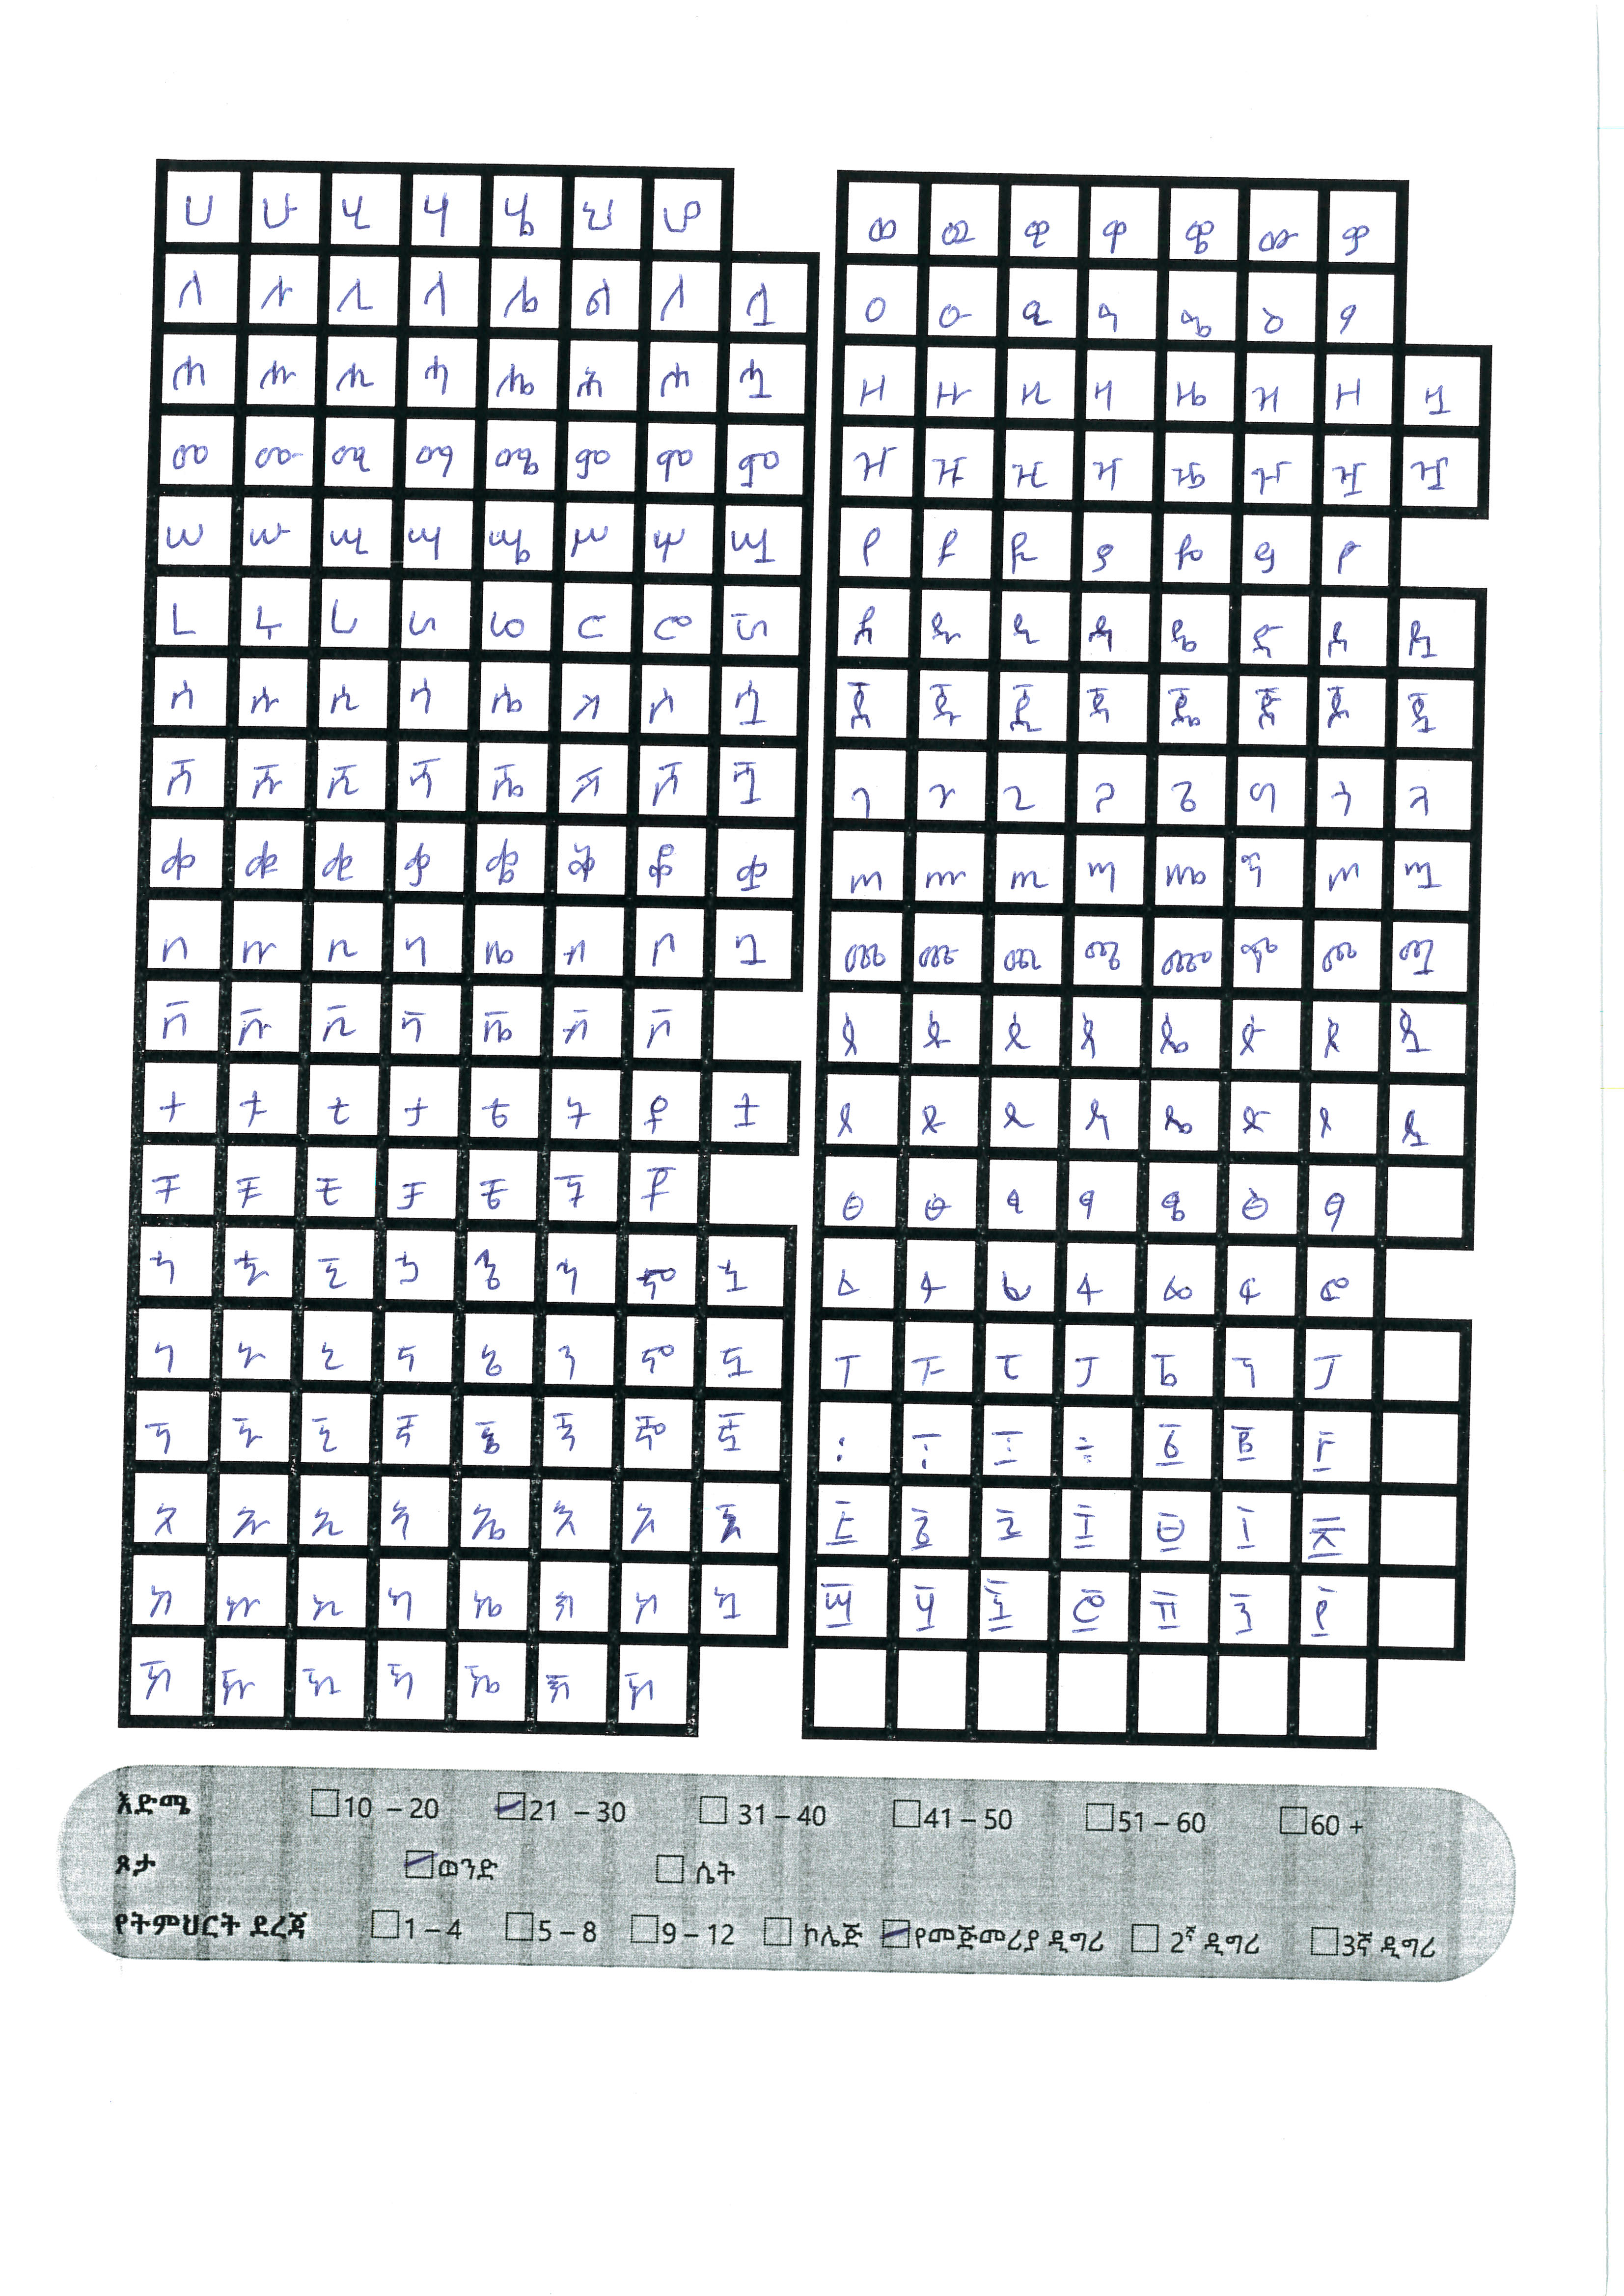 ሀ ሁ ሂ ሃ ሄ ህ ሆ
ለ ሉ ሊ ላ ሌ ል ሎ ሏ
ሐ ሑ ሒ ሓ ሔ ሕ ሖ ሗ
መ ሙ ሚ ማ ሜ ም ሞ ሟ
ሠ ሡ ሢ ሣ ሤ ሥ ሦ ሧ
ረ ሩ ሪ ራ ሬ ር ሮ ሯ
ሰ ሱ ሲ ሳ ሴ ስ ሶ ሷ
ሸ ሹ ሺ ሻ ሼ ሽ ሾ ሿ
ቀ ቁ ቂ ቃ ቄ ቅ ቆ ቋ
በ ቡ ቢ ባ ቤ ብ ቦ ቧ
ቨ ቩ ቪ ቫ ቬ ቭ ቮ
ተ ቱ ቲ ታ ቴ ት ቶ ቷ
ቸ ቹ ቺ ቻ ቼ ች ቾ
ኀ ኁ ኂ ኃ ኄ ኅ ኆ ኋ
ነ ኑ ኒ ና ኔ ን ኖ ኗ
ኘ ኙ ኚ ኛ ኜ ኝ ኞ ኟ
አ ኡ ኢ ኣ ኤ እ ኦ ኧ
ከ ኩ ኪ ካ ኬ ክ ኮ ኳ
ኸ ኹ ኺ ኻ ኼ ኽ ኾ
ወ ዉ ዊ ዋ ዌ ው ዎ
ዐ ዑ ዒ ዓ ዔ ዕ ዖ
ዘ ዙ ዚ ዛ ዜ ዝ ዞ ዟ
ዠ ዡ ዢ ዣ ዤ ዥ ዦ ዧ
የ ዩ ዪ ያ ዬ ይ ዮ
ደ ዱ ዲ ዳ ዴ ድ ዶ ዷ
ጀ ጁ ጂ ጃ ጄ ጅ ጆ ጇ
ገ ጉ ጊ ጋ ጌ ግ ጎ ጓ
ጠ ጡ ጢ ጣ ጤ ጥ ጦ ጧ
ጨ ጩ ጪ ጫ ጬ ጭ ጮ ጯ
ጰ ጱ ጲ ጳ ጴ ጵ ጶ ጷ
ጸ ጹ ጺ ጻ ጼ ጽ ጾ ጿ
ፀ ፁ ፂ ፃ ፄ ፅ ፆ
ፈ ፉ ፊ ፋ ፌ ፍ ፎ
ፐ ፑ ፒ ፓ ፔ ፕ ፖ
፩ ፪ ፫
፬ ፭ ፮ ፯ ፰ ፱ ፲
፳ ፴ ፵ ፶ ፷ ፸ ፹
እድሜ 10 – 20 21 – 30 31 – 40 41 – 50 51 – 60 60 +
ጾታ ወንድ ሴት
የትምህርት ደረጃ 1 – 4 5 – 8 9 – 12 ኮሌጅ የመጅመሪያ ዲግሪ 2ኛ ዲግሪ 3ኛ ዲግሪ